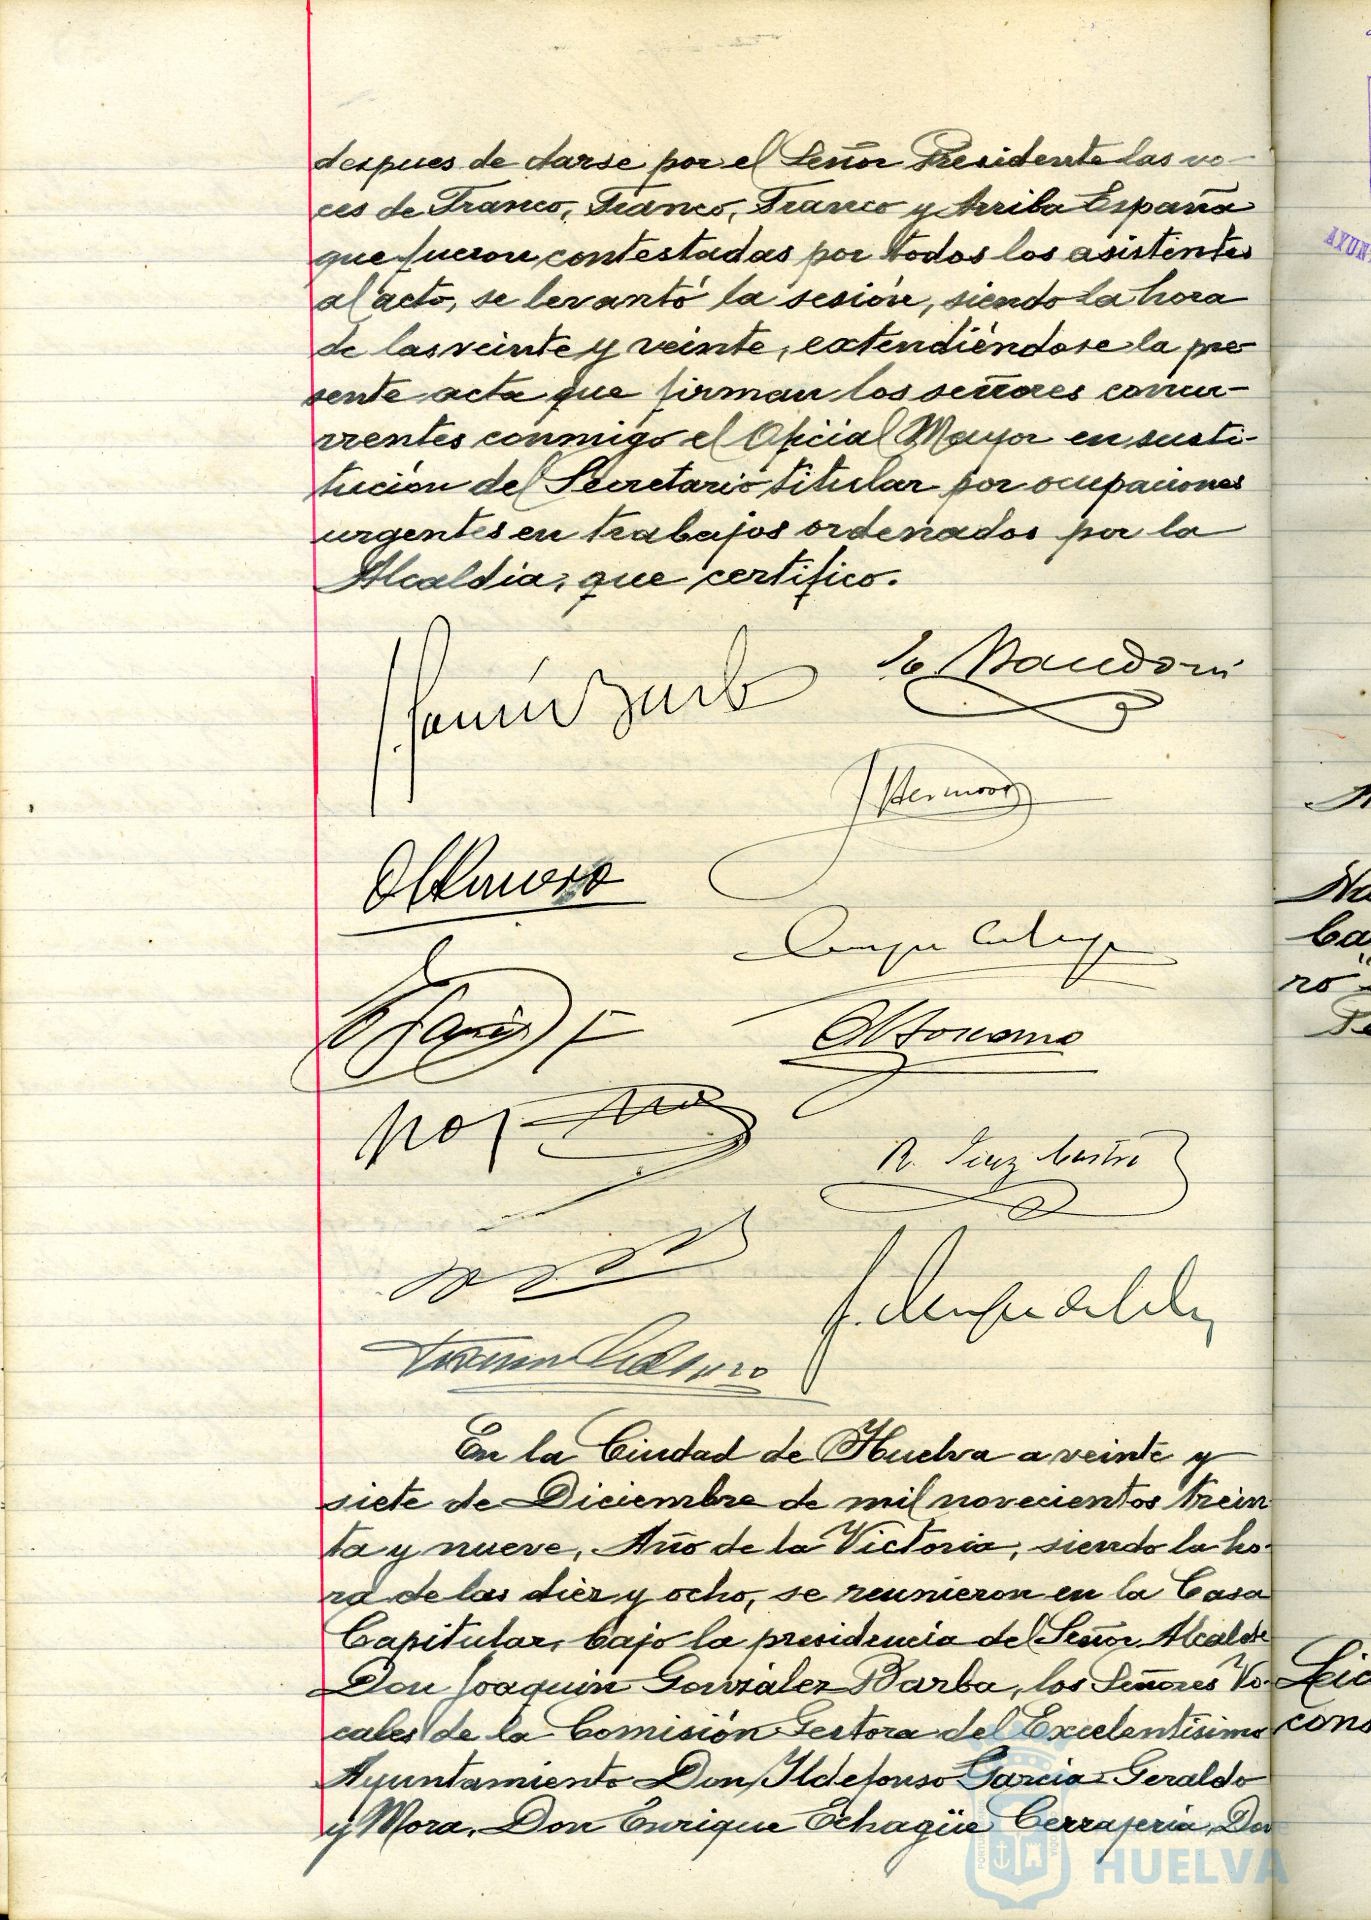 despues de darse por el Señor Presidente las vo-
ces de Franco, Franco, Franco y Arriba España
que fueron contestadas por todos los asistentes
al acto, se levantó la sesión, siendo la hora
de las veinte y veinte, extendiéndose la pre-
sente acta que firman los señores concu-
rrentes conmigo el Oficial Mayor en susti-
tución del Secretario titular por ocupaciones
urgentes en trabajos ordenados por la
Alcaldia, que certifico.
R. Diaz Castro
En la Ciudad de Huelva a veinte y
siete de Diciembre de mil novecientos trein
ta y nueve, Año de la Victoria, siendo la ho-
ra de las diez y ocho, se reunieron en la Casa
Capitular, bajo la presidencia del Señor Alcalde
Don Joaquin González Barba, los Señores Vo-
cales de la Comisión Gestora del Excelentísimo
Ayuntamiento Don Ildefonso Garcia-Geraldo
y Mora, Don Enrique Echagüe Cerrajeria, Don
HUELVA